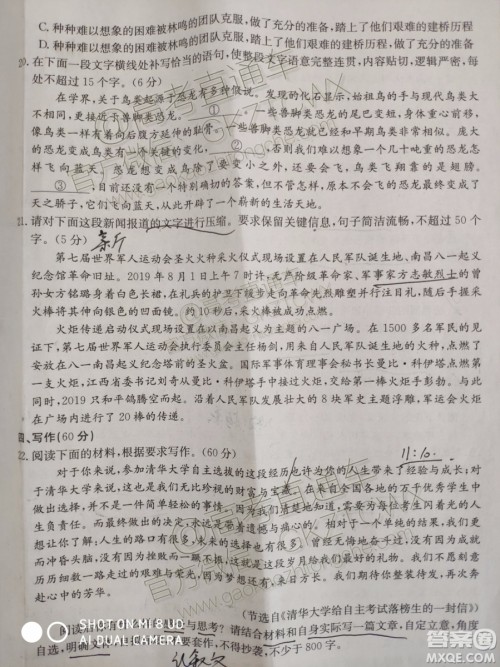 C. 种种难以想象的困难被林鸣的团队克服,做了充分的准备,踏上了他们艰难的建桥历程
D. 种种难以想象的困难被林鸣的团队克服,踏上了他们艰难的建桥历程,做了充分的准备
20. 在下面一段文字横线处补写恰当的语句,使整段文字语意完整连贯,内容贴切,逻辑严密,每
处不超过15个字。(6分)
在学界,关于鸟类起源于恐龙有多种假说。发现的化石显示,始祖鸟的手与现代鸟类大
不相同,更接近于兽脚类恐龙。 ① ,一些兽脚类恐龙的尾巴变短,身体重心前移,
像鸟类一样有着向后腹方延伸的耻骨。一些兽脚类恐龙就已经和早期鸟类非常相像。庞大
的恐龙变成鸟类有一个关键的变化, ② ,否则我们难以想象一个几十吨重的恐龙怎
样飞向蓝天。恐龙想变成鸟除了要变小之外,还要会飞,鸟类飞翔靠的是翅膀。
③ ,目前还没有一个特别确切的答案,但不管怎样,原本不会飞的恐龙最终变成了
天之骄子,它们飞向蓝天,从此开辟了一个崭新的生活天地。
21. 请对下面这段新闻报道的文字进行压缩。要求保留关键信息,句子简洁流畅,不超过50个
字。(5分)
第七届世界军人运动会圣火火种采火仪式现场设置在人民军队诞生地、南昌八一起义
纪念馆革命旧址。2019年8月1日上午7时许,无产阶级革命家、军事家方志敏烈士的曾
孙女方铭璐身着白色长裙,在礼兵的护卫下缓步走向革命先烈雕塑并行注目礼,随后手握采
火棒将其伸向银色的凹面镜。约10秒后,采火棒被成功点燃。
火炬传递启动仪式现场设置在以南昌起义为主题的八一广场。在1500多名军民的见
证下,第七届世界军人运动会执行委员会主任杨剑,用来自人民军队诞生地的火种,点燃了
安放在八一南昌起义纪念塔前的圣火盆。国际军事体育理事会秘书长曼比·科伊塔点燃第
一支火炬,江西省委书记刘奇从曼比·科伊塔手中接过火炬,交给第一棒火炬手彭勃。与此
同时,2019只和平鸽腾空而起。沿着人民军队发展壮大的8块军史主题浮雕,军运会火炬
在广场内进行了20棒的传递。
四、写作(60分)
22. 阅读下面的材料,根据要求写作。(60分)
11:10.
对于你来说,参加清华大学自主选拔的这段经历也许为你的人生带来了经验与成长;对
于清华大学来说,这也是我们无比珍视的财富与宝藏。在来自全国各地的万千优秀学生中
做出选择,并不是一件简单轻松的事情。因为我们清楚地知道,需要为每位考生闪着光的人
生负责任。而最终做出的决定,永远是带着遗憾与痛心的。相对于一个单纯的结果,我们更
想让你了解:人生的路口有很多,未来的选择也有很多。曾经无悔地奋斗过,没有因为成就
而冲昏头脑,没有因为挫败而一蹶不振,这就是这段岁月给我们最好的礼物。我们不愿刻意
历历细数一路走过的艰难与荣光,因为梦想还有来日方长。我们期待你整装待发,再次奔赴
心中的芳华。
(节选自《清华大学给自主考试落榜生的一封信》)
要求
SHOT ON MI 8 UD
AI DUAL CAMERA
答案圈